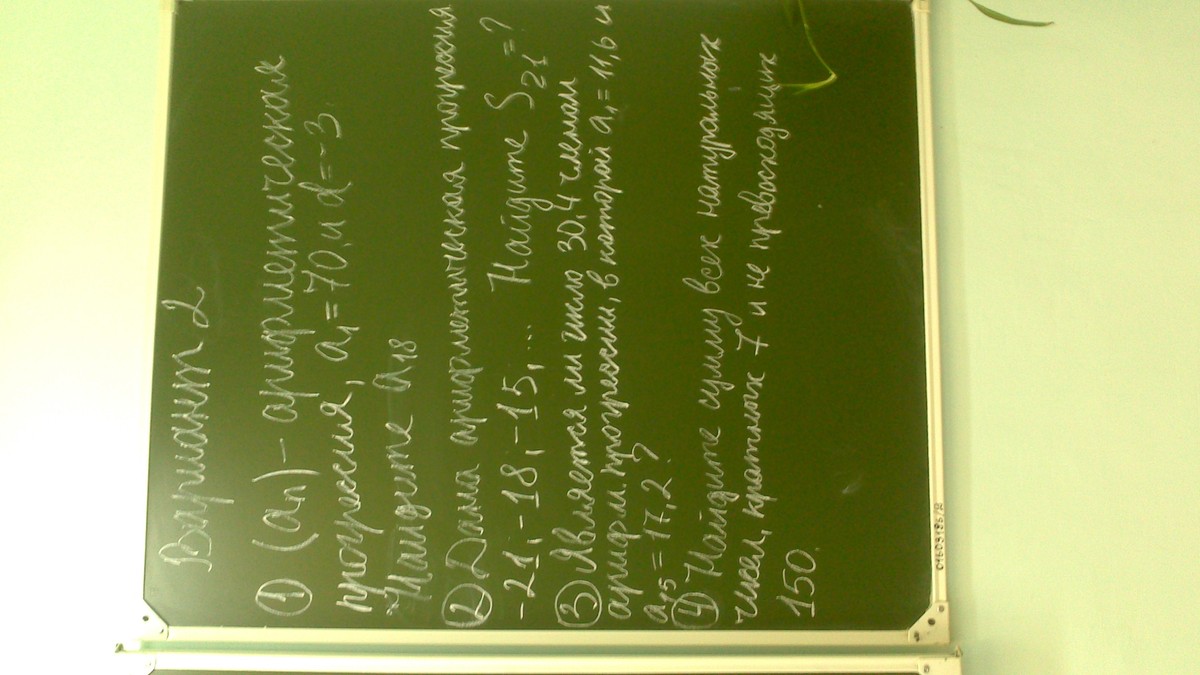 Вариант 2
① (aₙ) – арифметическая
прогрессия, a₁ = 70, и d = -3
Найдите a₁₈
② Дана арифметическая прогрессия
-21; -18; -15; ... Найдите S₂₁ = ?
③ Является ли число 30,4 членом
арифм. прогрессии, в которой a₁ = 11,6 и
a₁₅ = 17,2 ?
④ Найдите сумму всех натуральных
чисел, кратных 7 и не превосходящих
150.